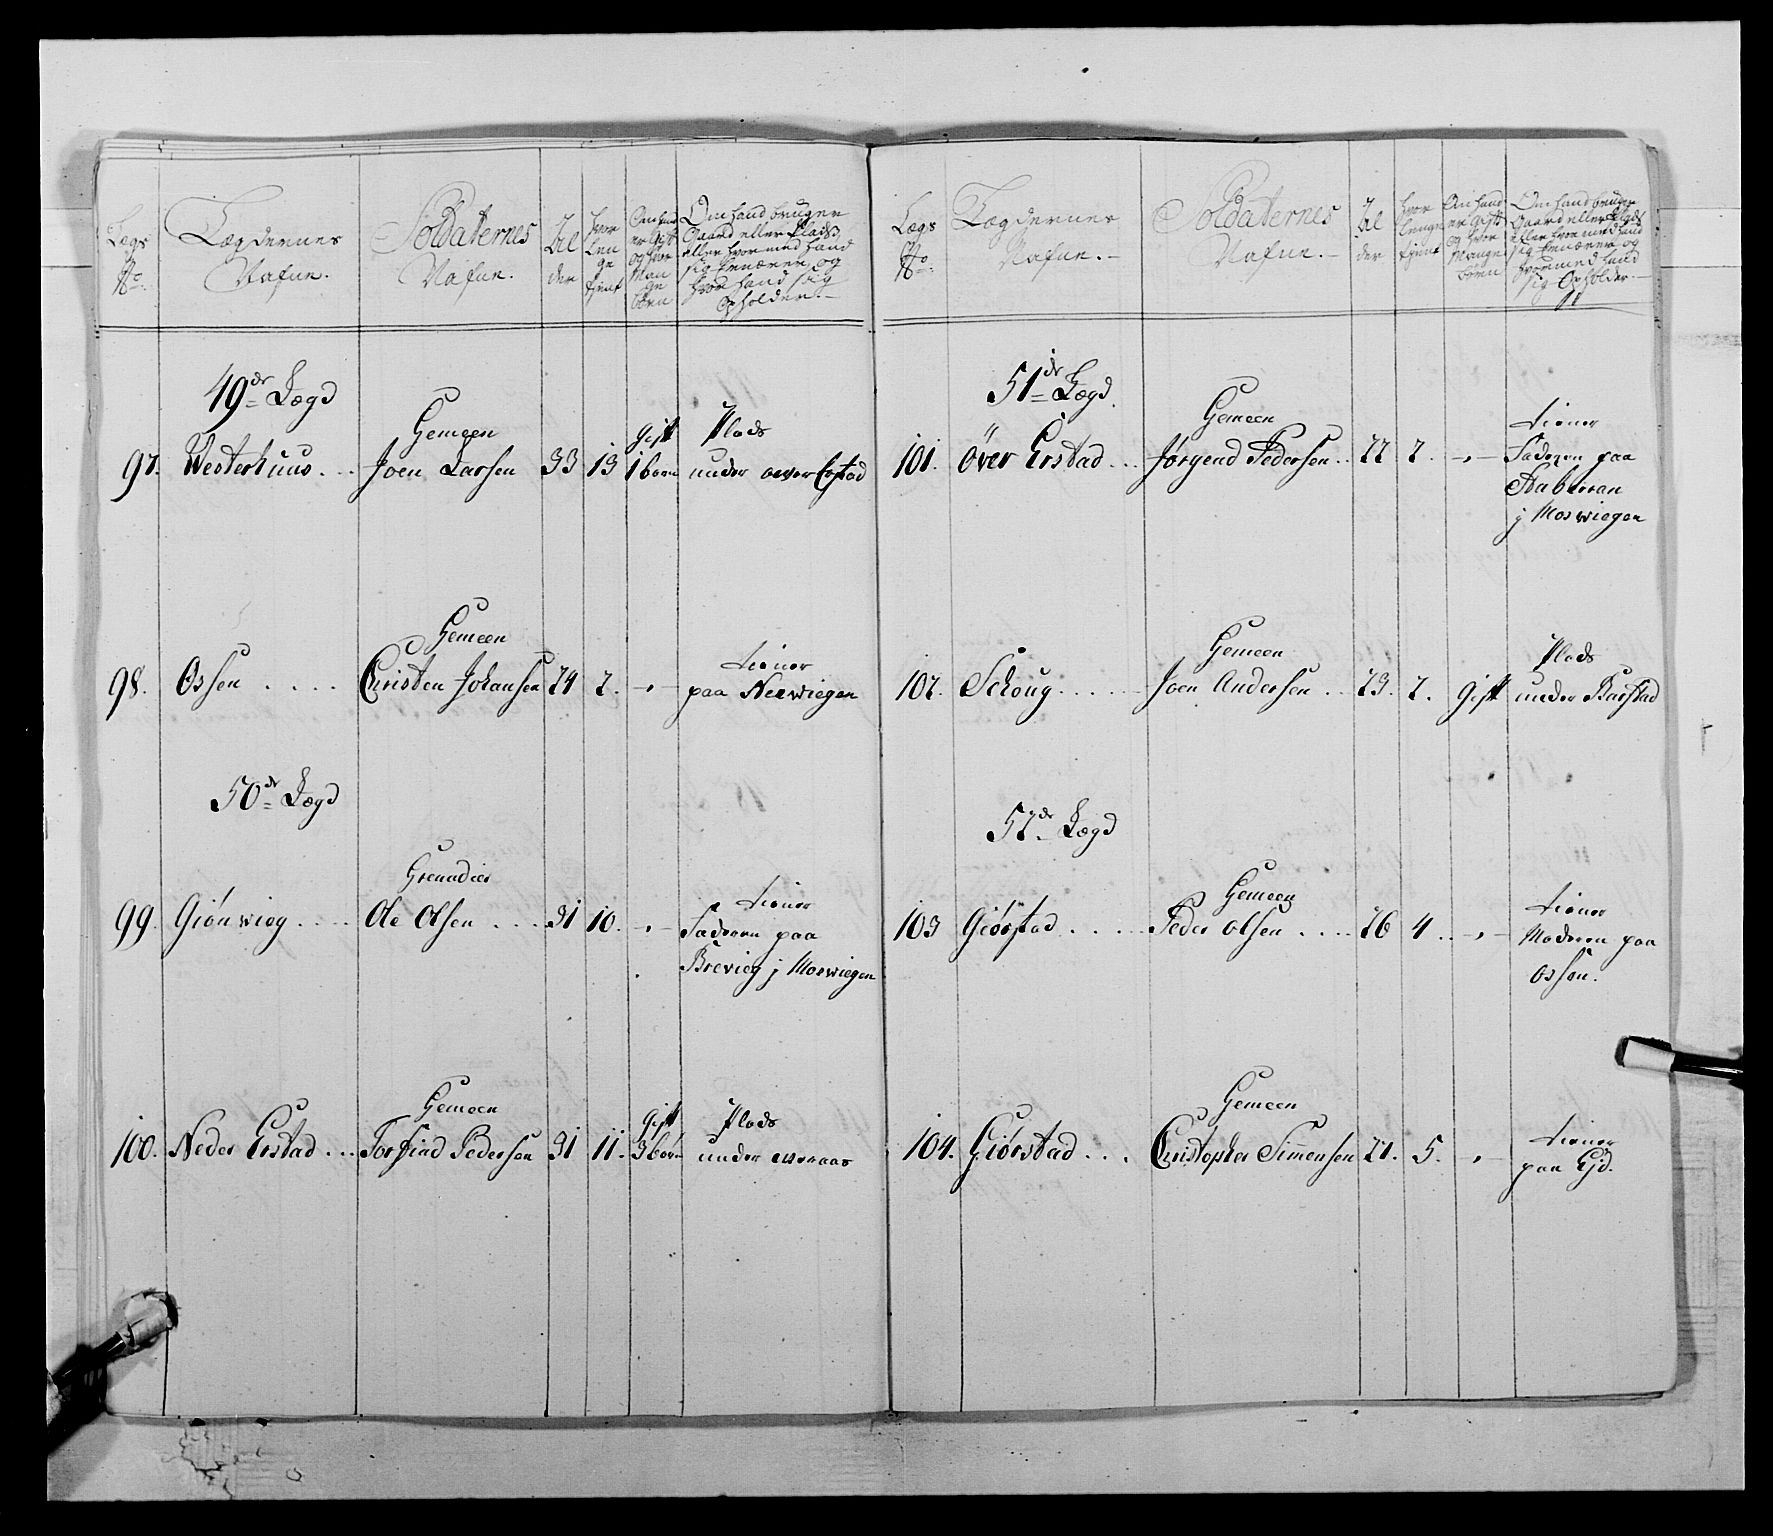 Lægs No:
Lægdernes Nafne.
Soldaternes Nafne.
Alder
Hvor Lenge tient
Om hand er gift og hvor Mange börn
Om hand bruger Gaard eller Plads, eller hvor med hand sig Ernærer, og hvor hand sig Opholder.
49de Lægd
97. Westerhuus. .. Gemeen Joen Larsen 33 13 Gift 1 børn Plads under over Erstad
98. Ossen . . . . Gemeen Christen Johansen 24 2. -"- tiener paa Nerwiegen
50de Lægd
99. Giönwieg . . . . Grenadeer Ole Olsen . . . 31 10. -"- tiener Faderen paa Brevieg j Morwiegen
100. Neder Erstad . .. Gemeen Torfind Pedersen 31 11. Gift 3 børn Plads under
Lægs No:
Lægdernes Nafne.
Soldaternes Nafne.
Alder
hvor lenge tient
Om hand er Gift og hvor Mange börn
Om hand bruger Gaard eller Plads eller hvor med hand sig Ernærer og hvormed hand sig Opholder
51de Lægd
101. över Erstad . .. Gemeen Jørgend Pedersen . . 22 2. -"- tiener Faderen paa j Morwiegen
102. Schoug. . . . . Gemeen Joen Andersen . . 23. 2. Gift Plads under Barstad
52de Lægd
103 Giörstad . . . . . Gemeen Peder Olsen . . . . 26 4. . -"- tiener Moderen paa Ossen.
104. Giörstad. . . . Gemeen Christopher Simensen 21. 5. -"- tiener paa Ejd.